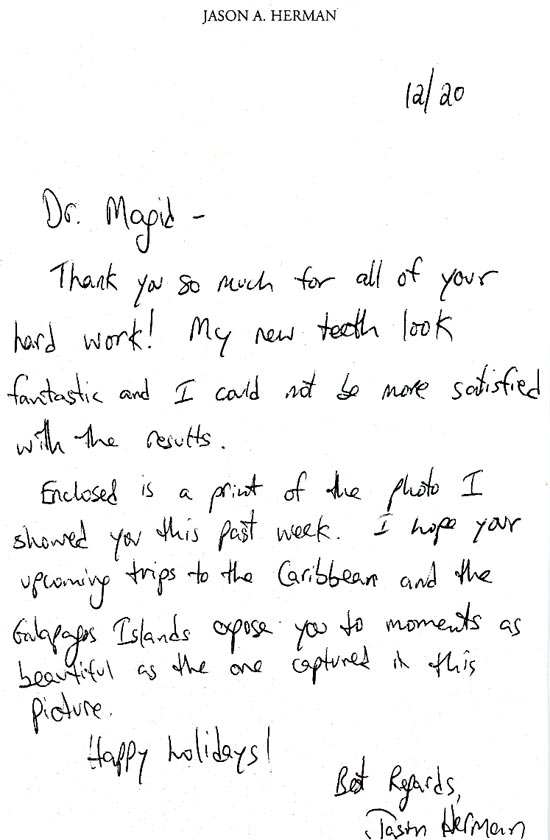 JASON A. HERMAN
12/20
Dr. Magid -
Thank you so much for all of your
hard work! My new teeth look
fantastic and I could not be more satisfied
with the results.
Enclosed is a print of the photo I
showed you this past week. I hope your
upcoming trips to the Caribbean and the
Galapagos Islands expose you to moments as
beautiful as the one captured in this
picture.
Happy holidays!
Best Regards,
Jason Herman